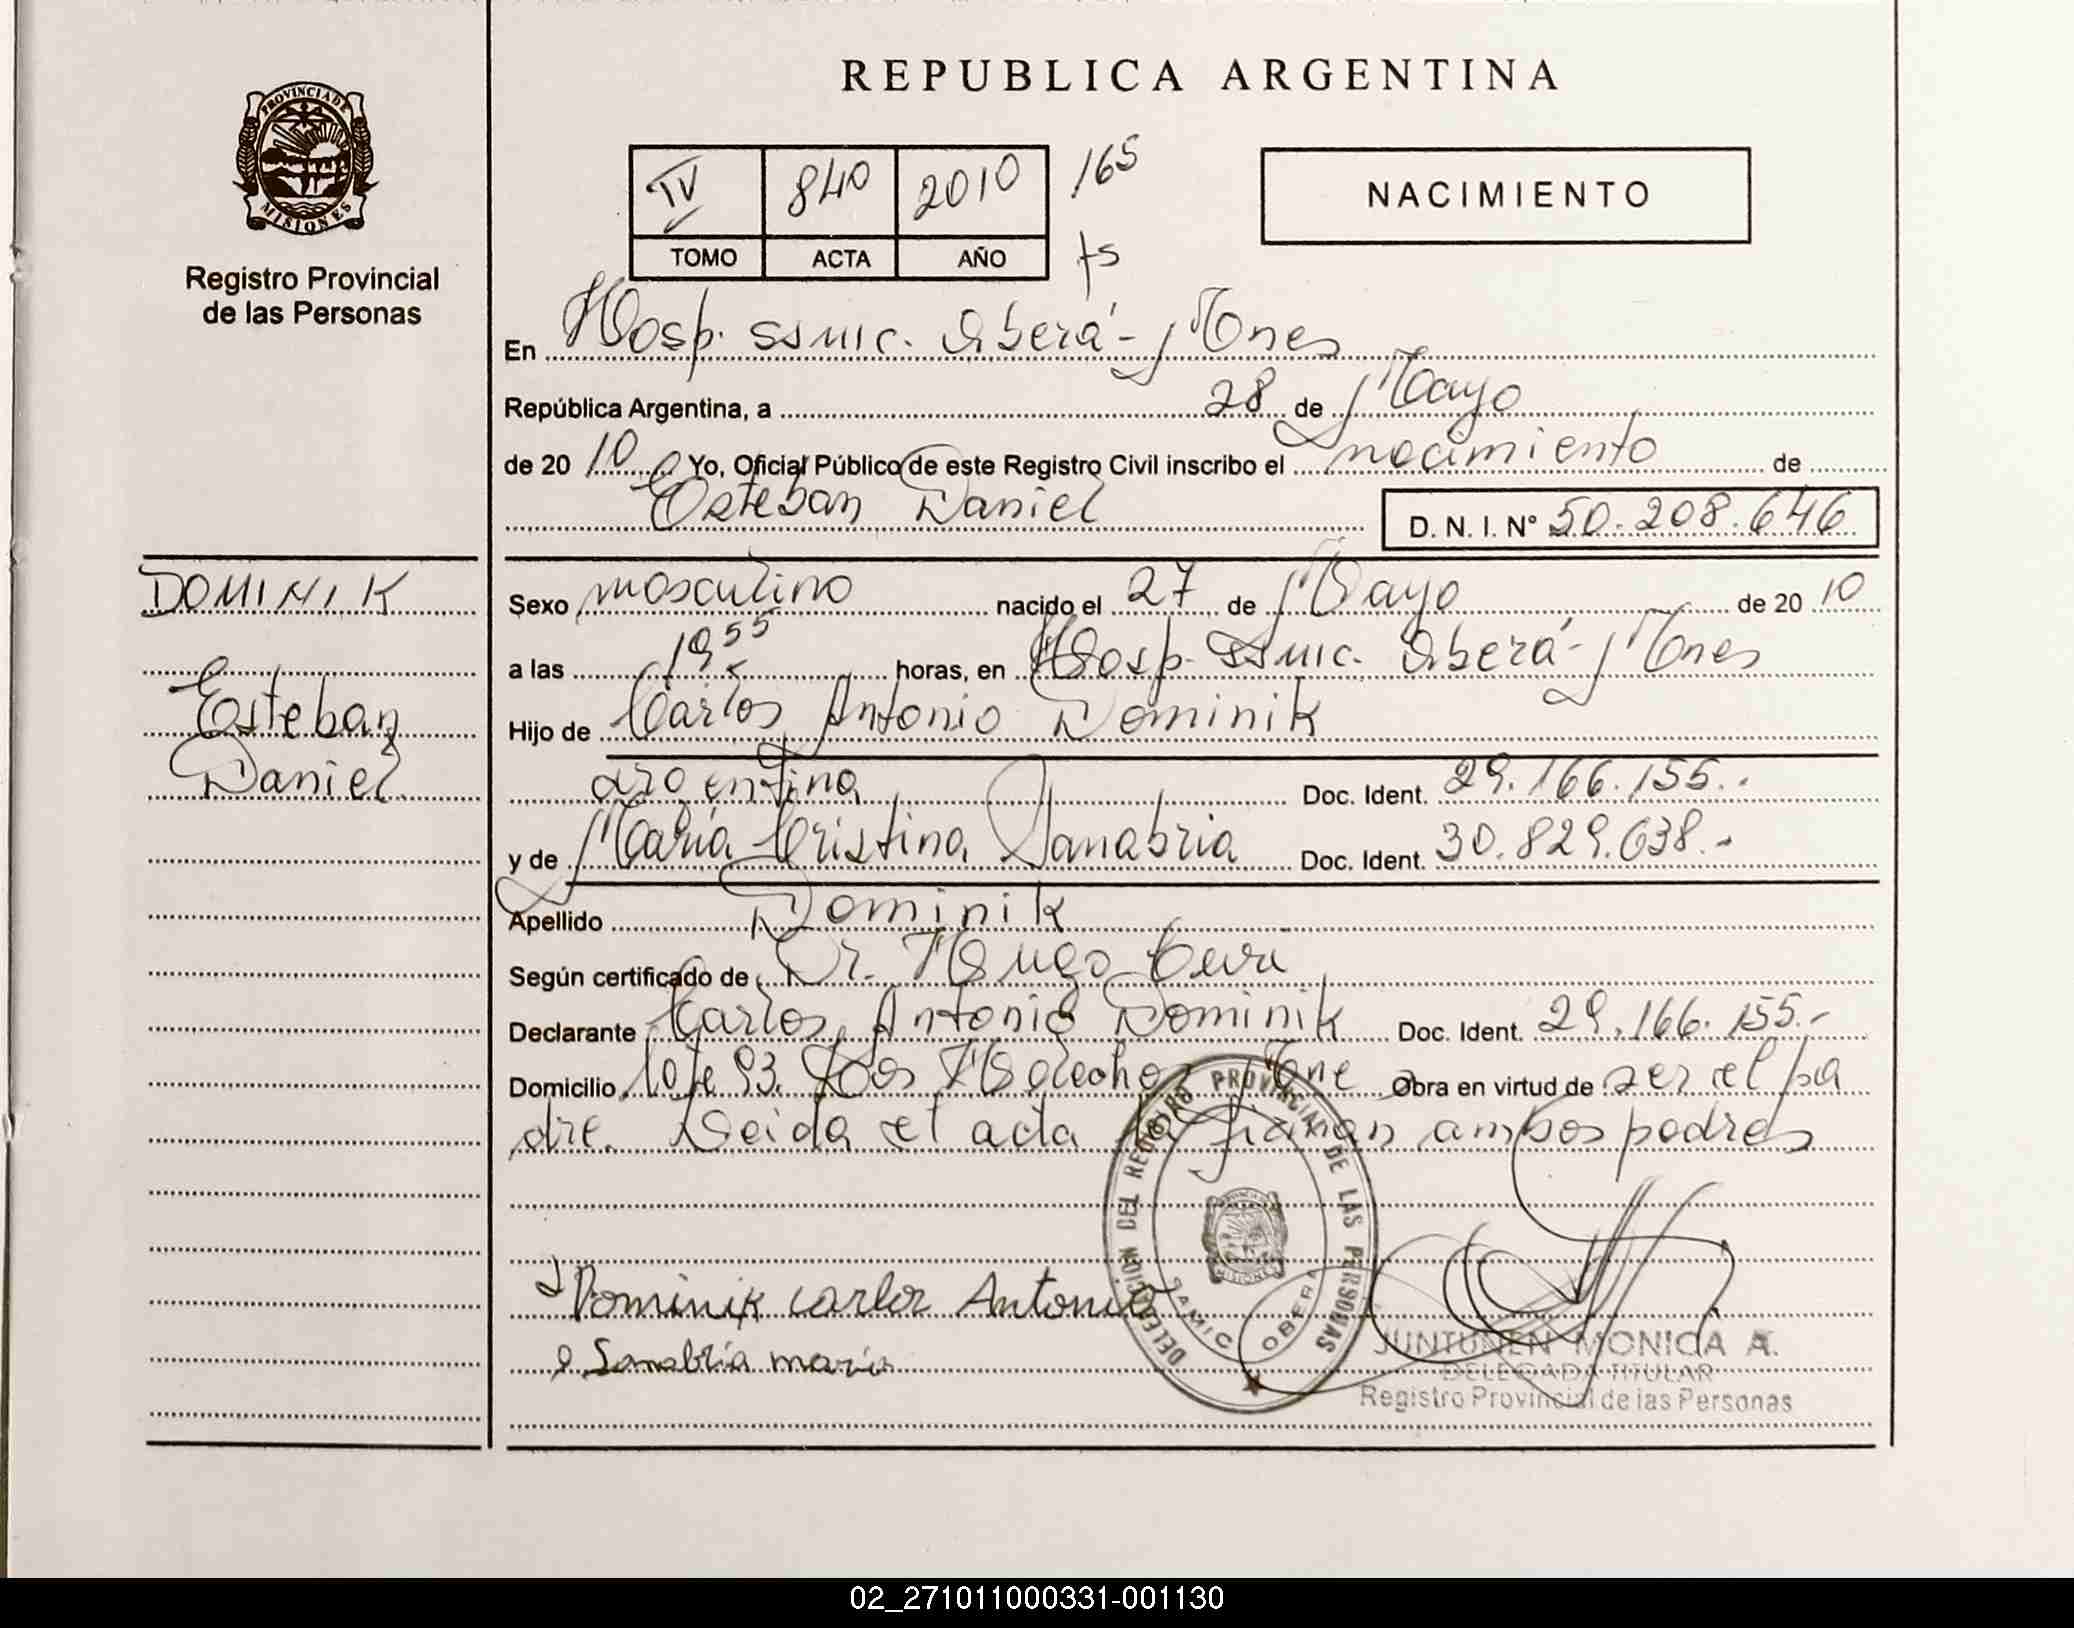 REPUBLICA ARGENTINA
PROVINCIA DE
MISIONES
Registro Provincial
de las Personas
IV 840 2010 165
TOMO ACTA AÑO fs
NACIMIENTO
En Hosp. SAMIC. Oberá - Mnes
República Argentina, a 28 de Mayo
de 20 10 Yo, Oficial Público de este Registro Civil inscribo el nacimiento de
Esteban Daniel D. N. I. N° 50.208.646
DOMINIK
Esteban
Daniel
Sexo masculino nacido el 27 de Mayo de 20 10
a las 19 55 horas, en Hosp. SAMIC. Oberá - Mnes
Hijo de Carlos Antonio Dominik
argentina Doc. Ident. 29.166.155.-
y de María Cristina Sanabria Doc. Ident. 30.829.638.-
Apellido Dominik
Según certificado de Dr. Hugo
Declarante Carlos Antonio Dominik Doc. Ident. 29.166.155.-
Domicilio lote 93. Dos Mne Obra en virtud de ser el pa
dre. Leida el acta la firman ambos padres
DELEGACION DEL REGISTRO PROVINCIAL DE LAS PERSONAS
PROVINCIA DE
MISIONES
SAMIC OBERA
Dominik carlos Antonio
Sanabria maria
JUNTUNEN MONICA A.
DELEGADA TITULAR
Registro Provincial de las Personas
02_271011000331-001130